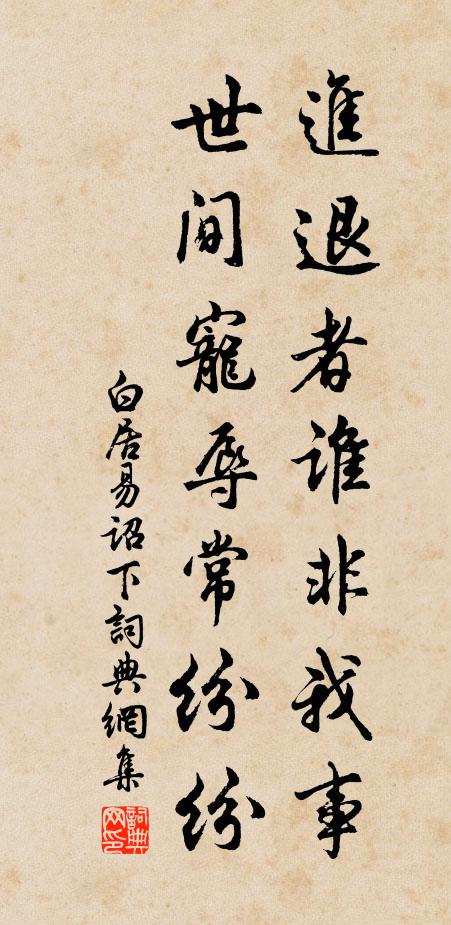 進退者誰非我事
世間寵辱常紛紛
白居易詔下詞典網集
詞典网印